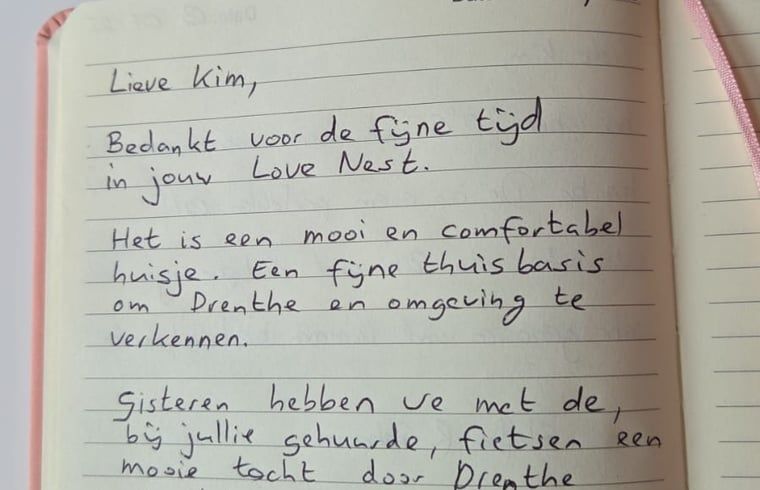 Lieve Kim,
Bedankt voor de fijne tijd
in jouw Love Nest.
Het is een mooi en comfortabel
huisje. Een fijne thuisbasis
om Drenthe en omgeving te
verkennen.
Gisteren hebben we met de,
bij jullie gehuurde, fietsen een
mooie tocht door Drenthe